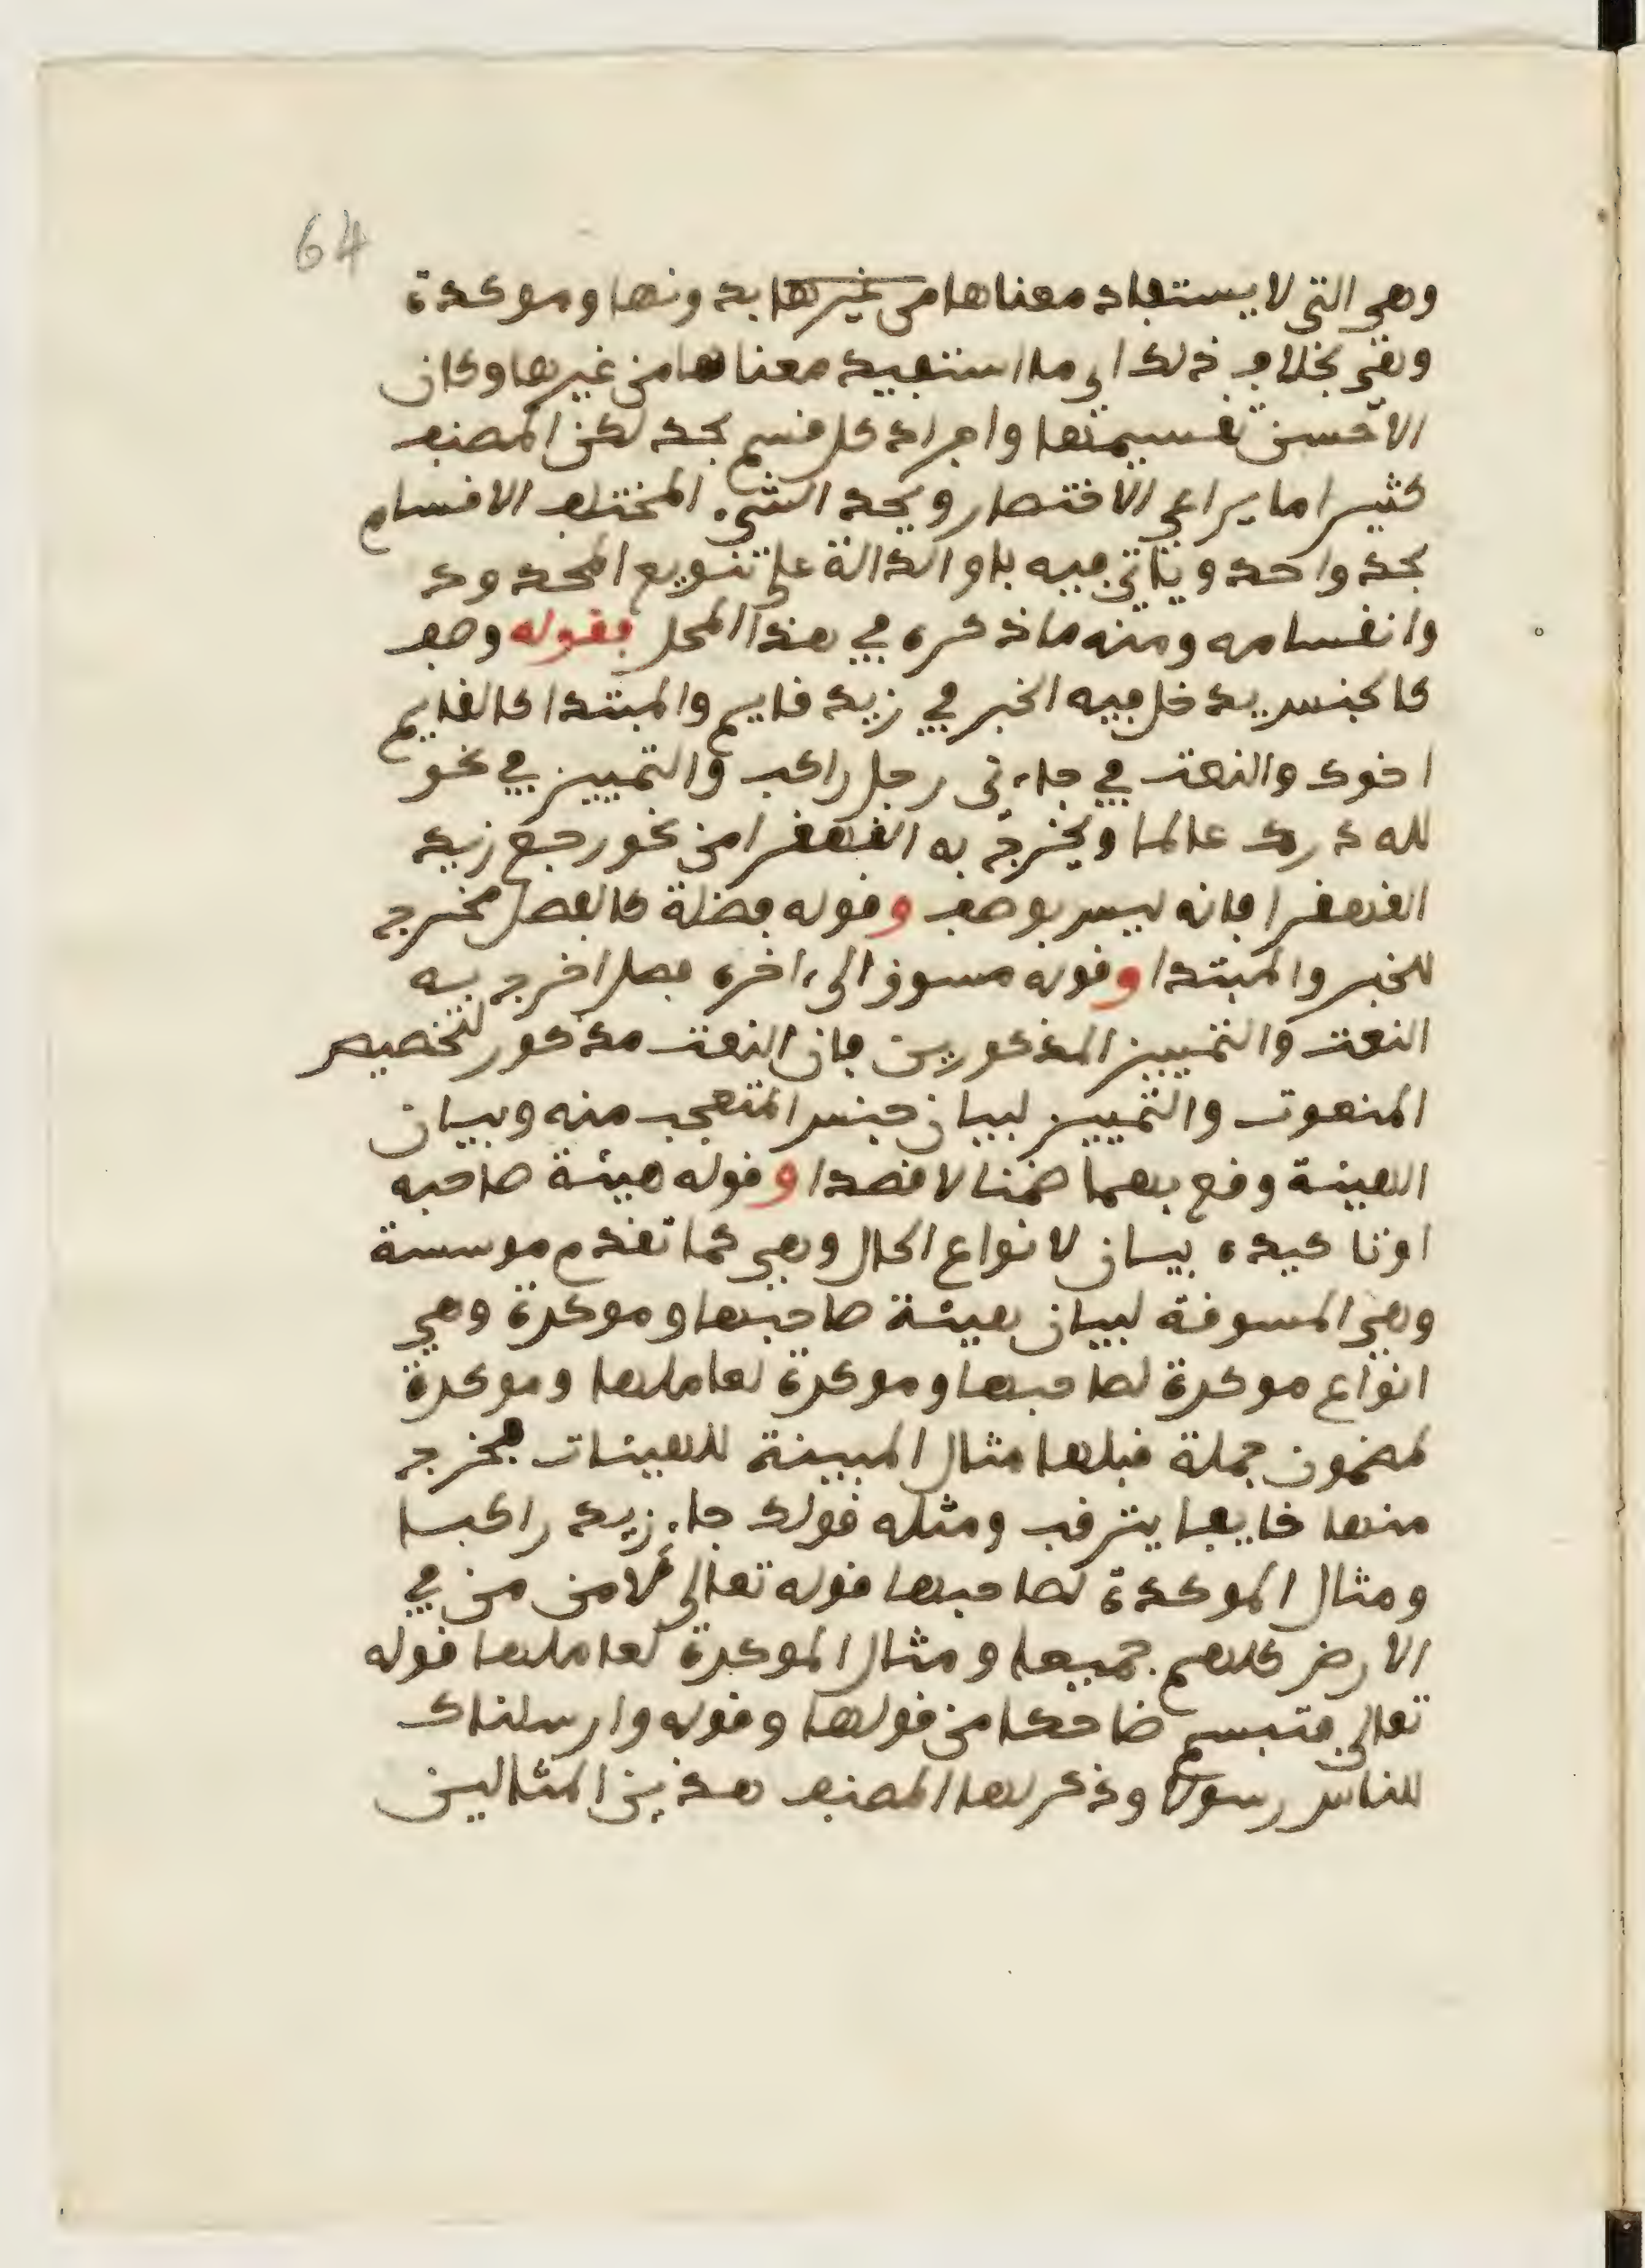 64
وهي التي لا يستفاد معناها من غيرها بدونها وموكدة
وهي بخلاف ذلك اي ما استفيد معناها من غيرها وكان
الاحسن تقسيمها وافراد كل قسم بحد لكن المصنف
كثيرا ما يراعي الاقتصار ويحد الشيء المختلف الاقسام
بحد واحد وياتي فيه باو الدالة على تنويع المحدود
وانقسامه ومنه ما ذكره في هذا المحل فقوله وصف
كالجنس يدخل فيه الخبر في زيد قايم والمبتدا كالقايم
اخوك والنعت في جاءني رجل راكب والتمييز في نحو
لله درك عالما ويخرج به القهقرا من نحو رجع زيد
القهقرا فانه ليس بوصف وقوله فضلة كالفصل مخرج
للخبر والمبتدا وقوله مسوق الى ءاخره فصل اخرج به
النعت والتمييز المذكورين فان النعت مذكور لتخصيص
المنعوت والتمييز لبيان جنس المتعجب منه وبيان
الهيئة وقع بهما ضمنا لا قصدا وقوله هيئة صاحبه
او تاكيده بيان لانواع الحال وهي كما تقدم موسسة
وهي المسوقة لبيان هيئة صاحبها وموكدة وهي
انواع موكدة لصاحبها وموكدة لعاملها وموكدة
لمضمون جملة قبلها مثال المبينة للهيئات فخرج
منها خايفا يترقب ومثله قولك جاء زيد راكبا
ومثال الموكدة لصاحبها قوله تعالى لامن من في
الارض كلهم جميعا ومثال الموكدة لعاملها قوله
تعالى فتبسم ضاحكا من قولها وقوله وارسلناك
للناس رسولا وذكر لها المصنف هذين المثالين